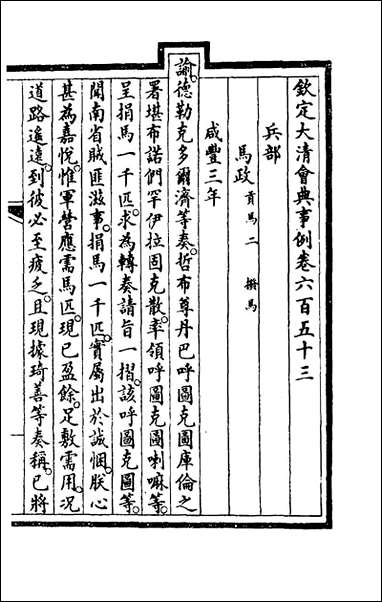 欽定大清會典事例卷六百五十三
兵部
馬政貢馬二 撥馬
咸豐三年
諭。德勒克多爾濟等奏。哲布尊丹巴呼圖克圖庫倫之
署堪布諾們罕伊拉固克散。率領呼圖克圖喇嘛等。
呈捐馬一千匹。求為轉奏請旨一摺。該呼圖克圖等。
聞南省賊匪滋事。捐馬一千匹。實屬出於誠悃。朕心
甚為嘉悅。惟軍營應需馬匹。現已盈餘。足敷需用。況
道路遙遠。到彼必至疲乏。且現據琦善等奏稱。已將